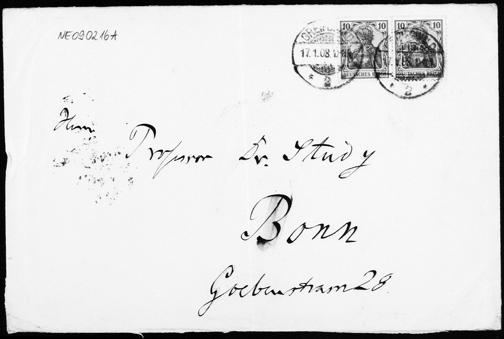 NE090216A
10 10
DEUTSCHES REICH
17.1.08.
2 2
Herrn
Professor Dr. Study
Bonn
Goebenstrasse 28.